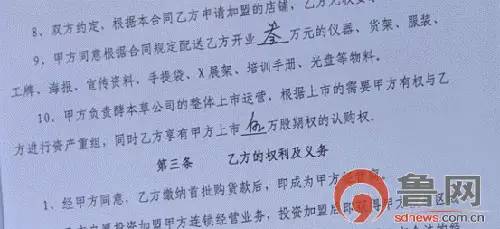 8、双方约定，根据本合同乙方申请加盟的店铺，
9、甲方同意根据合同规定配送乙方开业 叁 万元的仪器、货架、服装、
工牌、海报、宣传资料、手提袋、X展架、培训手册、光盘等物料。
10、甲方负责酵本草公司的整体上市运营，根据上市的需要甲方有权与乙
方进行资产重组，同时乙方享有甲方上市 伍 万股期权的认购权.
第三条 乙方的权利及义务
1、经甲方同意，乙方缴纳首批购货款后，即成为甲方
投资加盟甲方连锁经营业务，投资加盟后即获得甲方
鲁网
sdnews.com.cn